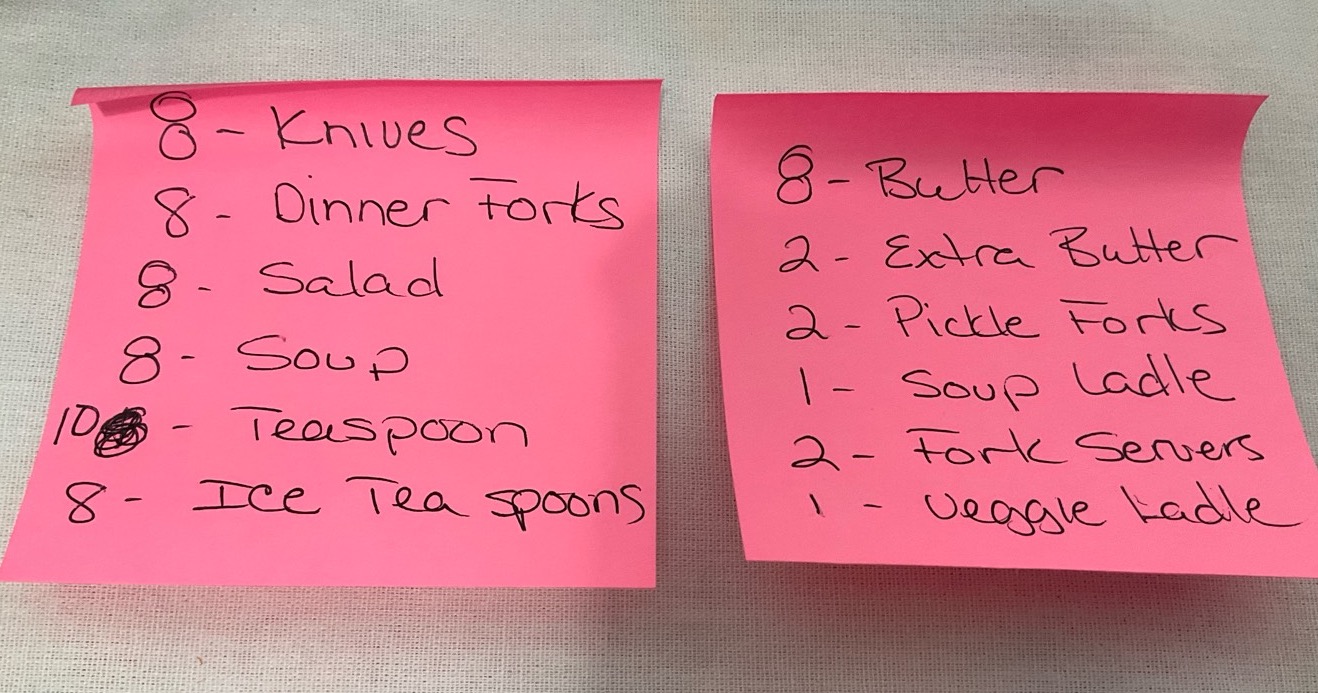 8 - Knives
8 - Dinner Forks
8 - Salad
8 - Soup
10 - Teaspoon
8 - Ice Tea spoons
8 - Butter
2 - Extra Butter
2 - Pickle Forks
1 - Soup Ladle
2 - Fork Servers
1 - Veggie Ladle